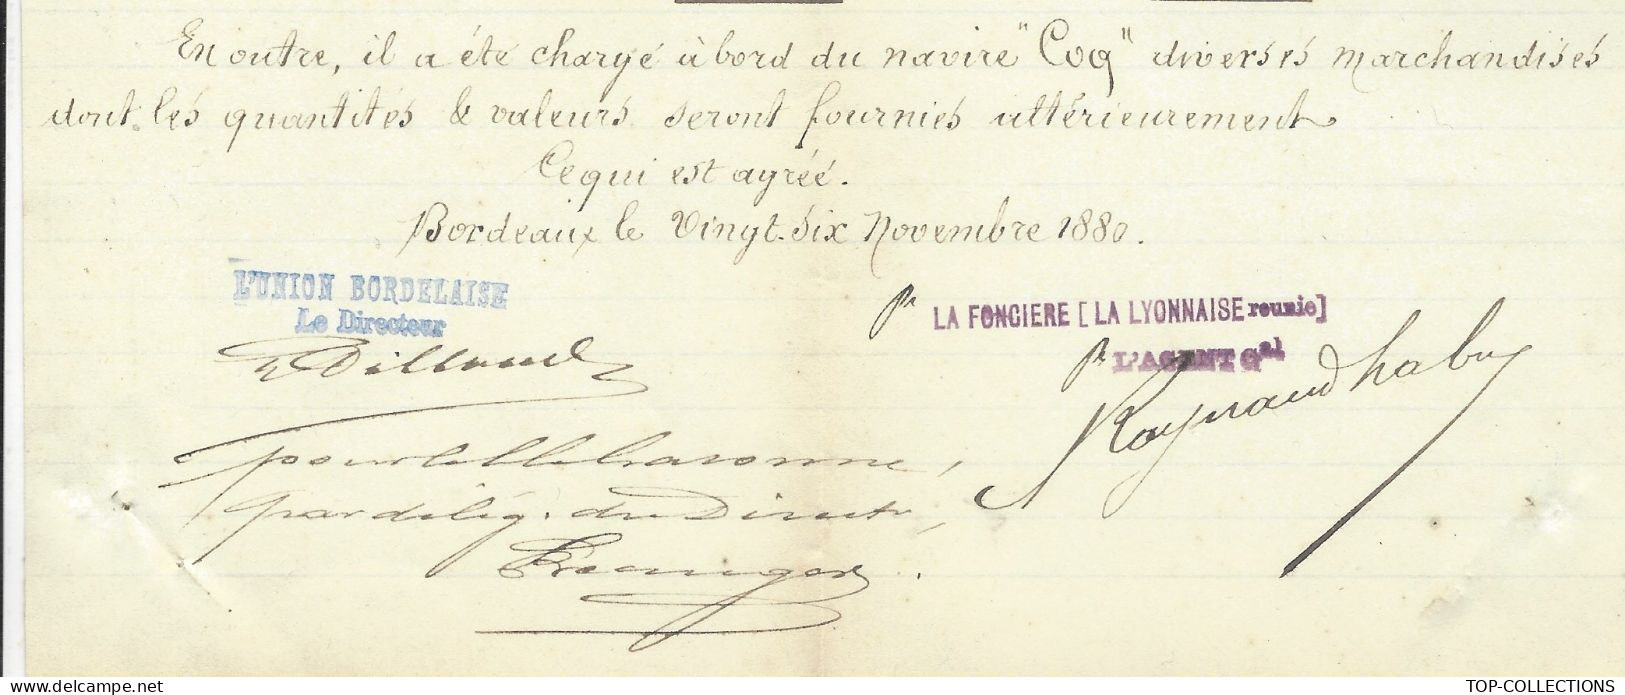 En outre, il a été chargé à bord du navire "Coq" diverses marchandises
dont les quantités & valeurs seront fournies ultérieurement
Ce qui est agréé.
Bordeaux le Vingt-Six Novembre 1880.
L'UNION BORDELAISE
Le Directeur
pr LA FONCIERE [LA LYONNAISE reunie]
pr L'AGENT Gal
pour la
par délég. du Direct
TOP-COLLECTIONS